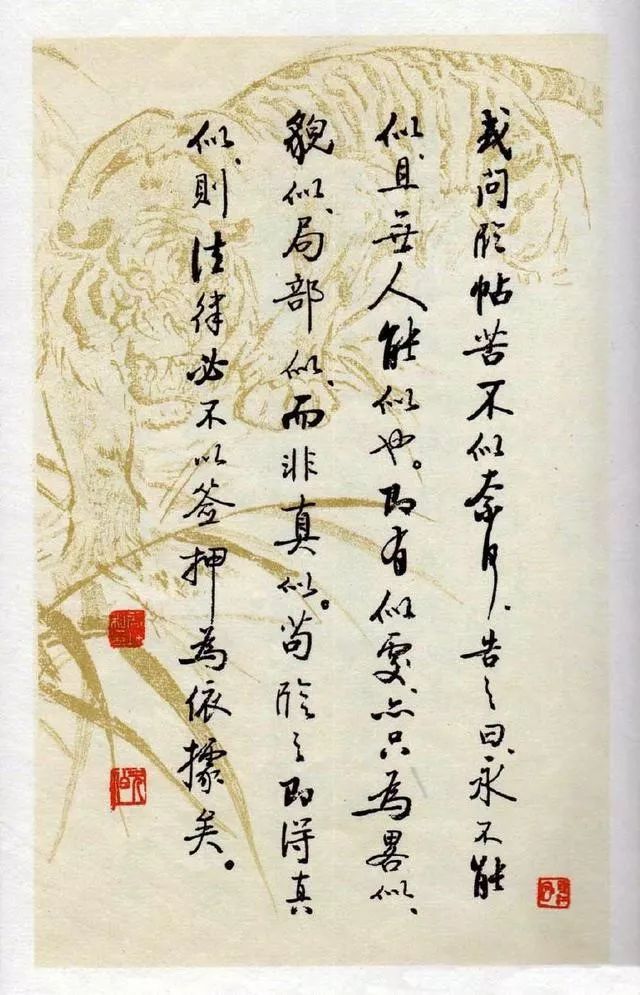 或问临帖苦不似奈何、告之曰、永不能
似、且無人能似也。即有似處、亦只為畧似、
貌似、局部似、而非真似。苟临之即得真
似、則法律必不以签押為依據矣。